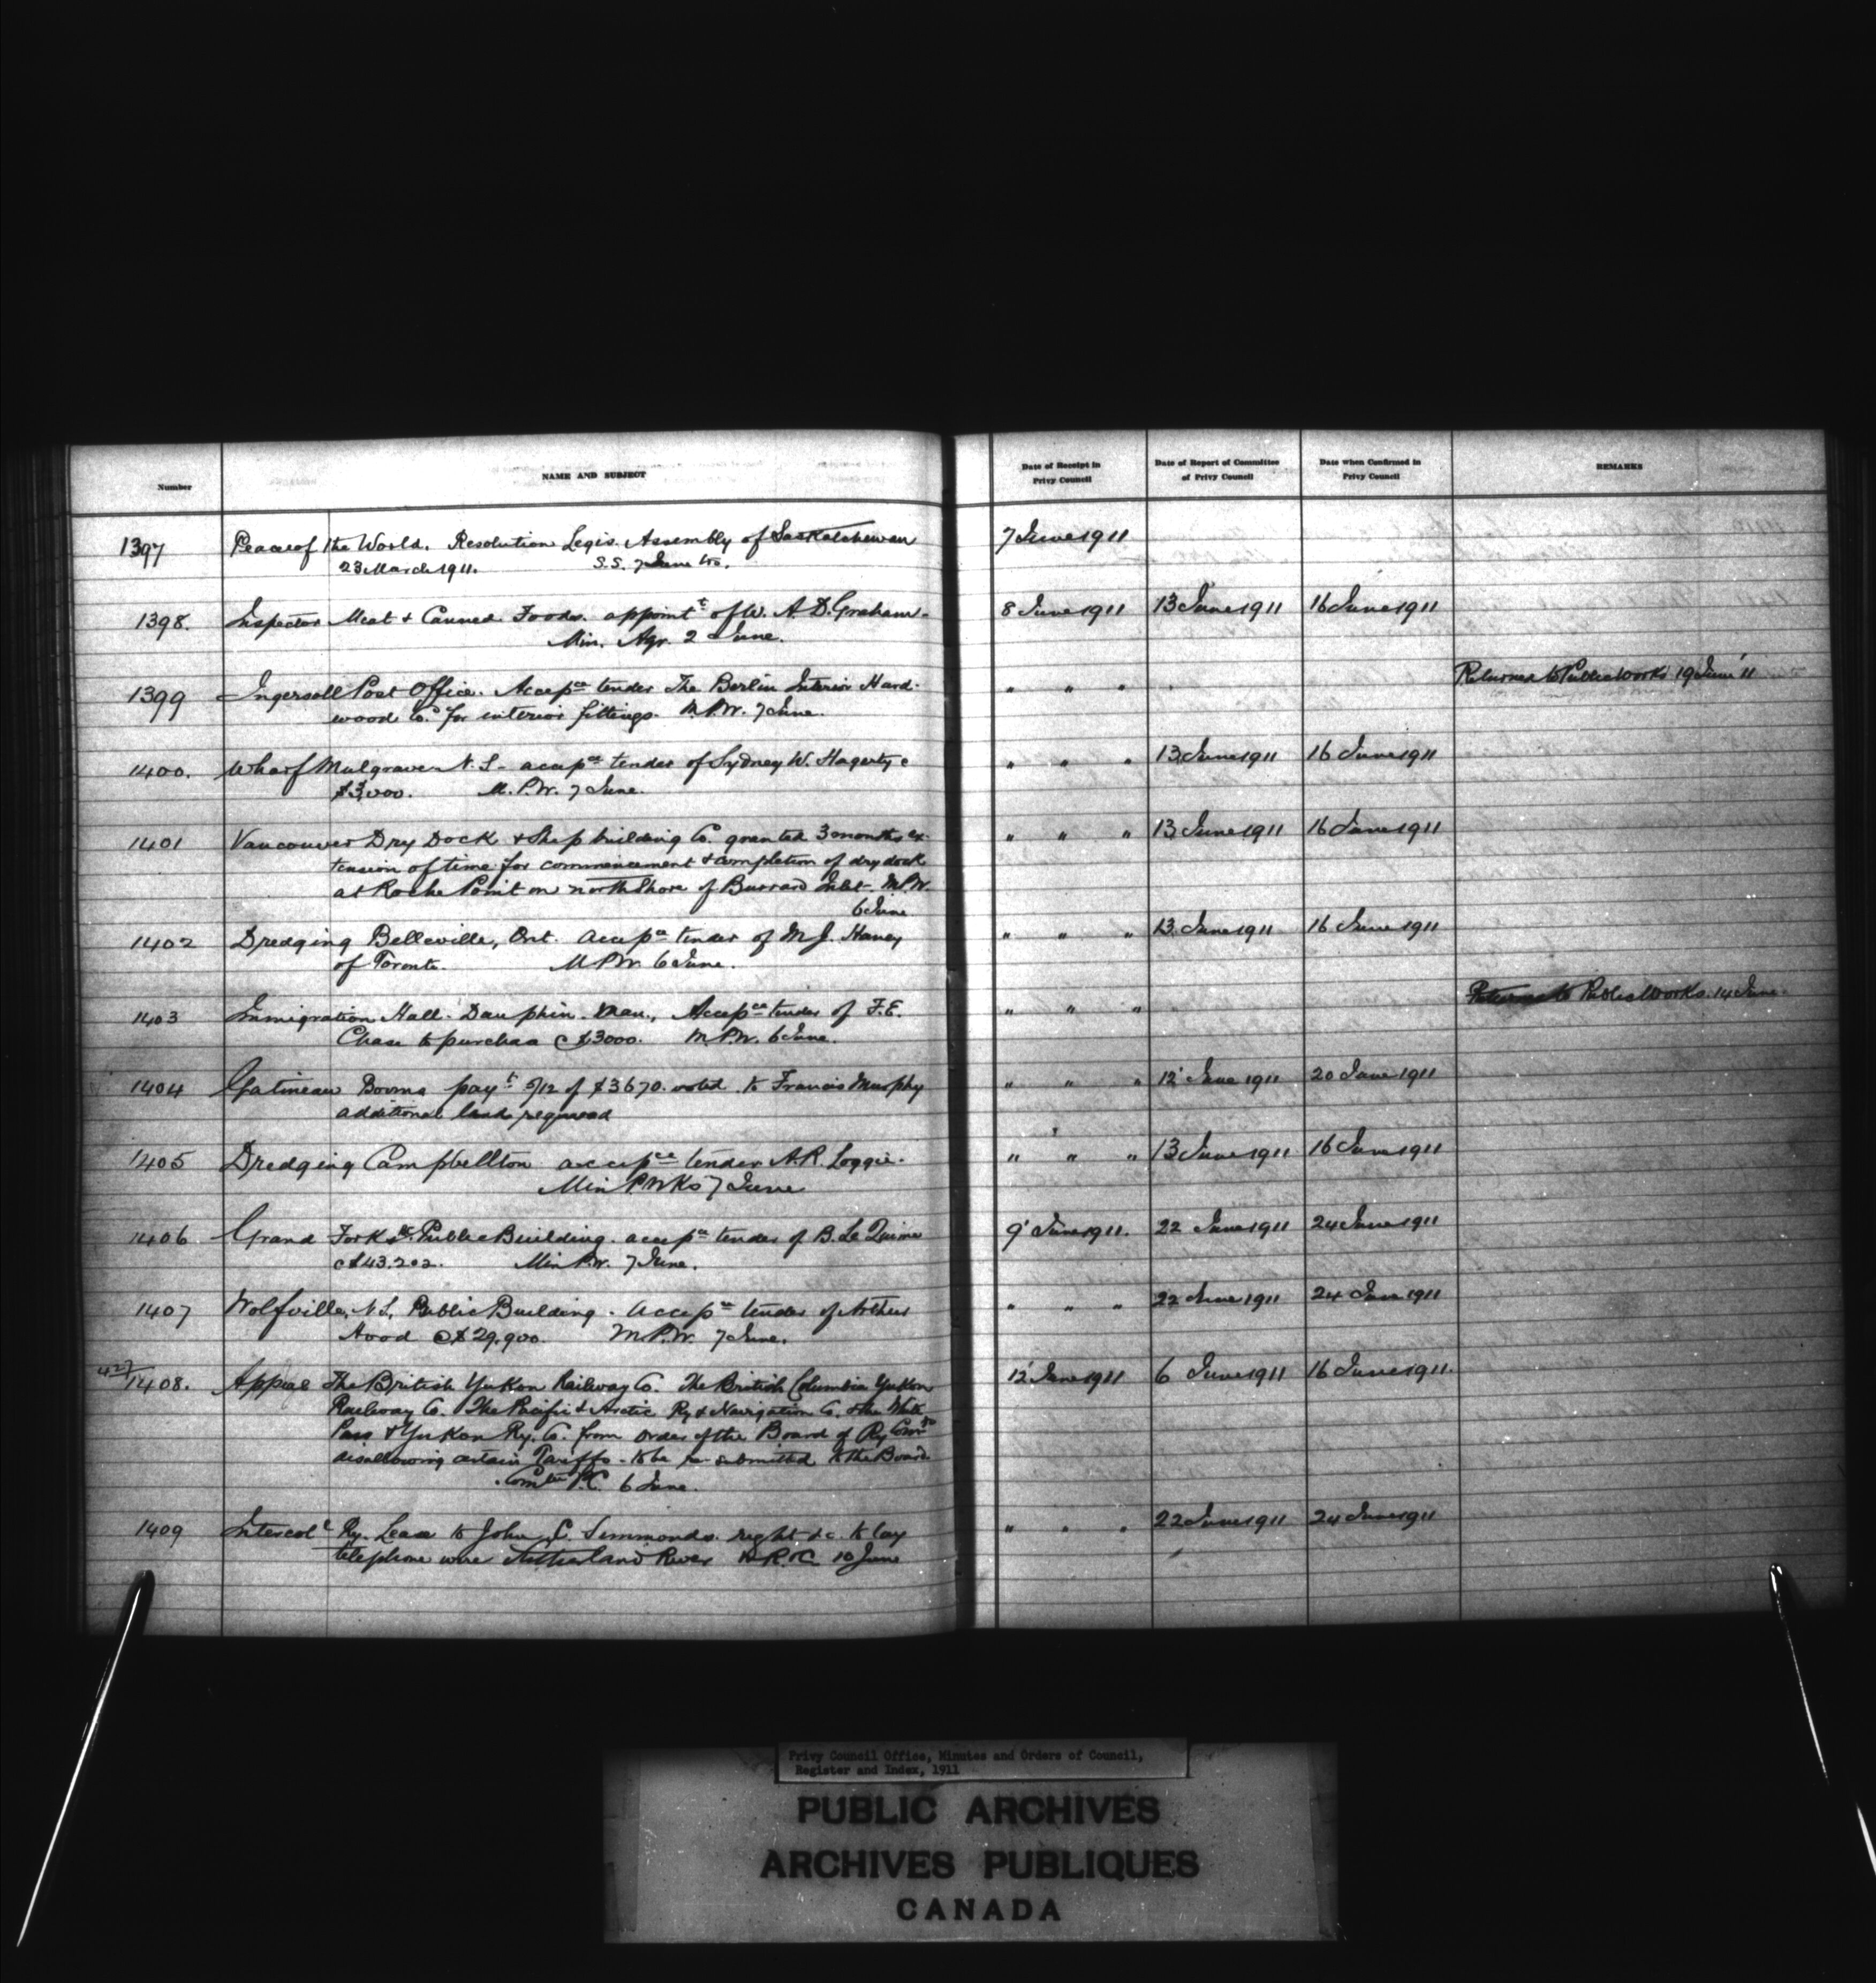 Number NAME AND SUBJECT Date of Receipt in Privy Council Date of Report of Committee of Privy Council Date when Confirmed in Privy Council REMARKS
1397 Peace of the World. Resolution Legis. Assembly of Saskatchewan 7 June 1911
23 March 1911. S.S. 7 June
1398. Inspector Meat & Canned Foods. appointt of W. A. D. Graham- 8 June 1911 13 June 1911 16 June 1911
Min. Agr. 2 June.
1399 Ingersoll Post Office. Accepce tender The Berlin Interior Hard- " " " Returned to Public Works 19 June '11
wood Co. for interior fittings. M.P.W. 7 June.
1400. Wharf Mulgrave N.S- accepce tender of Sydney W. Hagerty c " " " 13 June 1911 16 June 1911
$3,000. M.P.W. 7 June.
1401 Vancouver Dry Dock & Ship building Co. granted 3 months ex- " " " 13 June 1911 16 June 1911
tension of time for commencement & completion of dry dock
at Roche Point on north shore of Burrard Inlet- M.P.W.
6 June
1402 Dredging Belleville, Ont. accepce tender of M J. Haney " " " 13 June 1911 16 June 1911
of Toronto. M.P.W. 6 June.
1403 Immigration Hall. Dauphin. Man., Accepce tender of F.E. " " " Returned to Public Works. 14 June.
Chase to purchase c $3000. M.P.W. 6 June.
1404 Gatineau Booms payt 5/12 of $3670. voted to Francis Murphy " " " 12 June 1911 20 June 1911
additional land required
1405 Dredging Campbellton accepce tender A.R. Loggie. " " " 13 June 1911 16 June 1911
Min P Wks 7 June
1406 Grand Forks Public Building. accepce tender of B. Le Quime 9 June 1911. 22 June 1911 24 June 1911
c $43.202. Min P.W. 7 June.
1407 Wolfville, N.S, Public Building. accepce tender of Arthur " " " 22 June 1911 24 June 1911
Hood c $29,900. M.P.W. 7 June.
427/1408. Appeal The British Yukon Railway Co. The British Columbia Yukon 12 June 1911 6 June 1911 16 June 1911.
Railway Co. The Pacific & Arctic Ry & Navigation Co. & the White
Pass & Yukon Ry. Co. from order of the Board of Ry Comrs
disallowing certain Tariffs - to be re-submitted to the Board.
Comtee P.C. 6 June.
1409 Intercol Ry. Lease to John C. Simmonds. right &c. to lay " " " 22 June 1911 24 June 1911
telephone wire Sutherland River M.R.&C 10 June
Privy Council Office, Minutes and Orders of Council,
Register and Index, 1911
PUBLIC ARCHIVES
ARCHIVES PUBLIQUES
CANADA